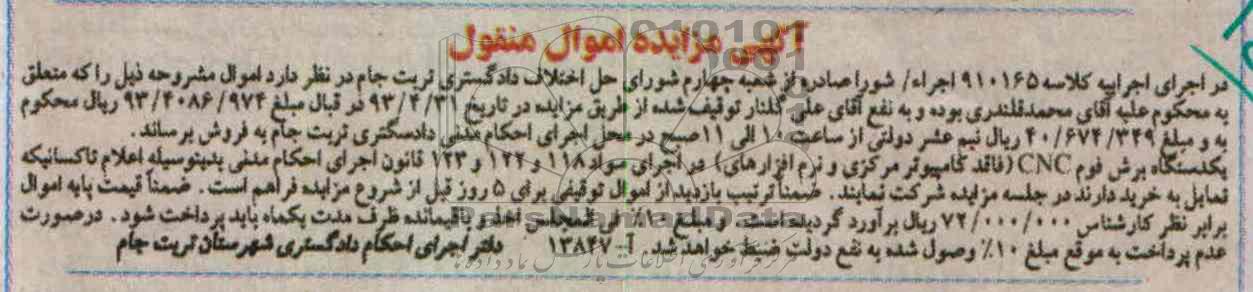 آگهی مزایده اموال منقول
در اجرای اجراییه کلاسه ۹۱۰۱۶۵ اجراء/ شورا صادره از شعبه چهارم شورای حل اختلاف دادگستری تربت جام در نظر دارد اموال مشروحه ذیل را که متعلق
به محکوم علیه آقای محمدقلندری بوده و به نفع آقای علی گلنار توقیف شده از طریق مزایده در تاریخ ۹۳/۴/۳۱ در قبال مبلغ ۹۳/۴۰۸۶/۹۷۴ ریال محکوم
به و مبلغ ۴۰/۶۷۴/۳۴۹ ریال نیم عشر دولتی از ساعت ۱۰ الی ۱۱ صبح در محل اجرای احکام مدنی دادسگتری تربت جام به فروش برساند.
یکدستگاه برش فوم CNC (فاقد کامپیوتر مرکزی و نرم افزارهای) در اجرای مواد ۱۱۸ و ۱۲۲ و ۱۲۳ قانون اجرای احکام مدنی بدینوسیله اعلام تاکسانیکه
تمایل به خرید دارند در جلسه مزایده شرکت نمایند. ضمناً ترتیب بازدید از اموال توقیفی برای ۵ روز قبل از شروع مزایده فراهم است. ضمناً قیمت پایه اموال
برابر نظر کارشناس ۷۲/۰۰۰/۰۰۰ ریال برآورد گردیده است و مبلغ ۱۰٪ فی المجلس اخذ و باقیمانده ظرف مدت یکماه باید پرداخت شود. درصورت
عدم پرداخت به موقع مبلغ ۱۰٪ وصول شده به نفع دولت ضبط خواهد شد. آ-۱۳۸۴۷ دفتر اجرای احکام دادگستری شهرستان تربت جام